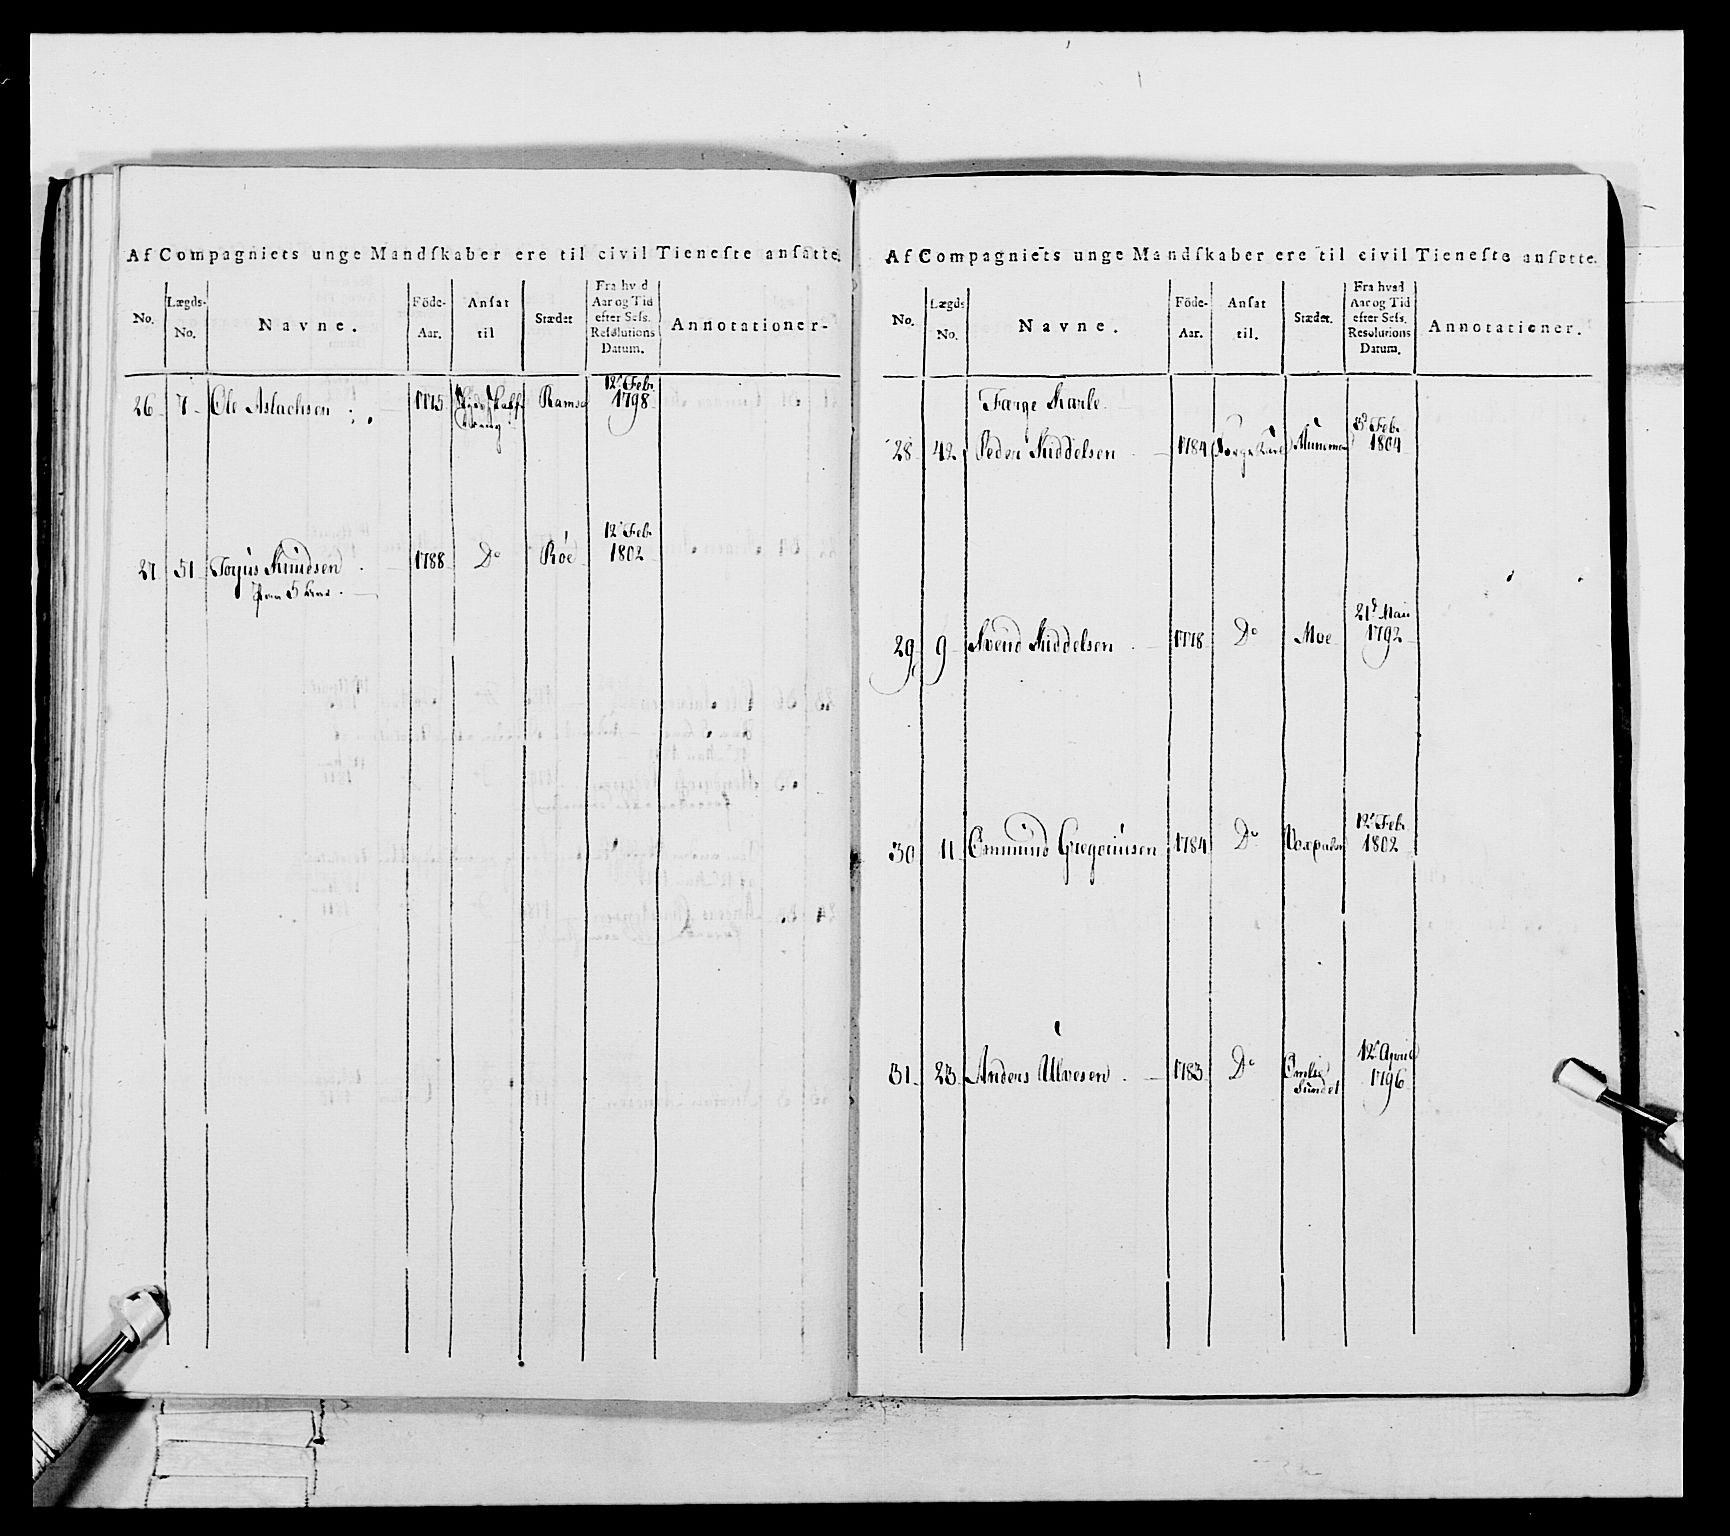 Af Compagniets unge Mandſkaber ere til civil Tieneſte anſatte.
No. Lægds-No. Navne. Föde-Aar. Anſat til Stædet Fra hvad Aar og Tid efter Seſs. Reſolutions Datum. Annotationer-
12t Feb.
26 7 Ole Aslachsen 1775 1798
12t Feb.
27 51 Knudsen 1788 Do Röe 1802
Af Compagniets unge Mandſkaber ere til civil Tieneſte anſatte.
No. Lægds No. Navne. Föde-Aar. Anſat til. Stædet. Fra hvad Aar og Tid efter Seſs. Resolutions Datum. Annotationer.
Færge Karle
3d Feb.
28 42 Peder Kiddelsen 1784 Færge Karl 1804
21d Mai
29 9 Svend Kiddelsen 1778 Do Moe 1792
12t Feb.
30 11 Ommund Gregoriusen 1784 Do 1802
12t April
31 23 Anders Ulvesen 1783 Do 1796
Sundet